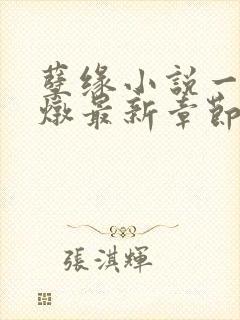 孽缘小説一
燉最新章節
張淇輝